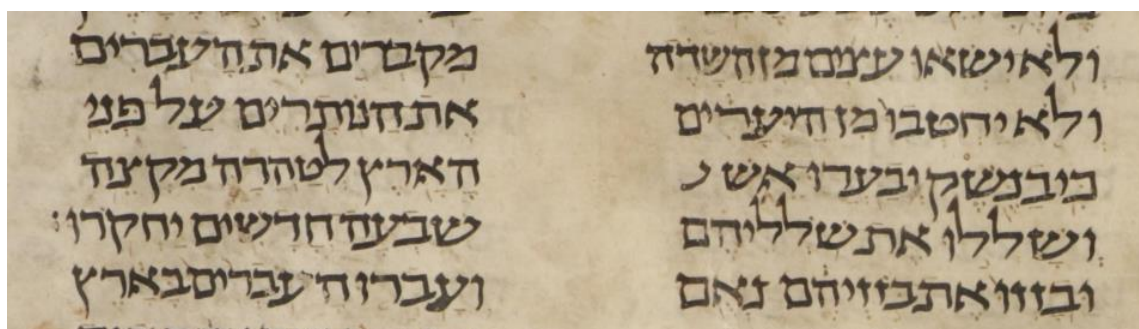 ולא ישאו עצים מן השדה
ולא יחטבו מן היערים
כי בנשק יבערו אש
ושללו את שלליהם
ובזזו את בזזיהם נאם
מקברים את העברים
את הנותרים על פני
הארץ לטהרה מקצה
שבעה חדשים יחקרו:
ועברו העברים בארץ